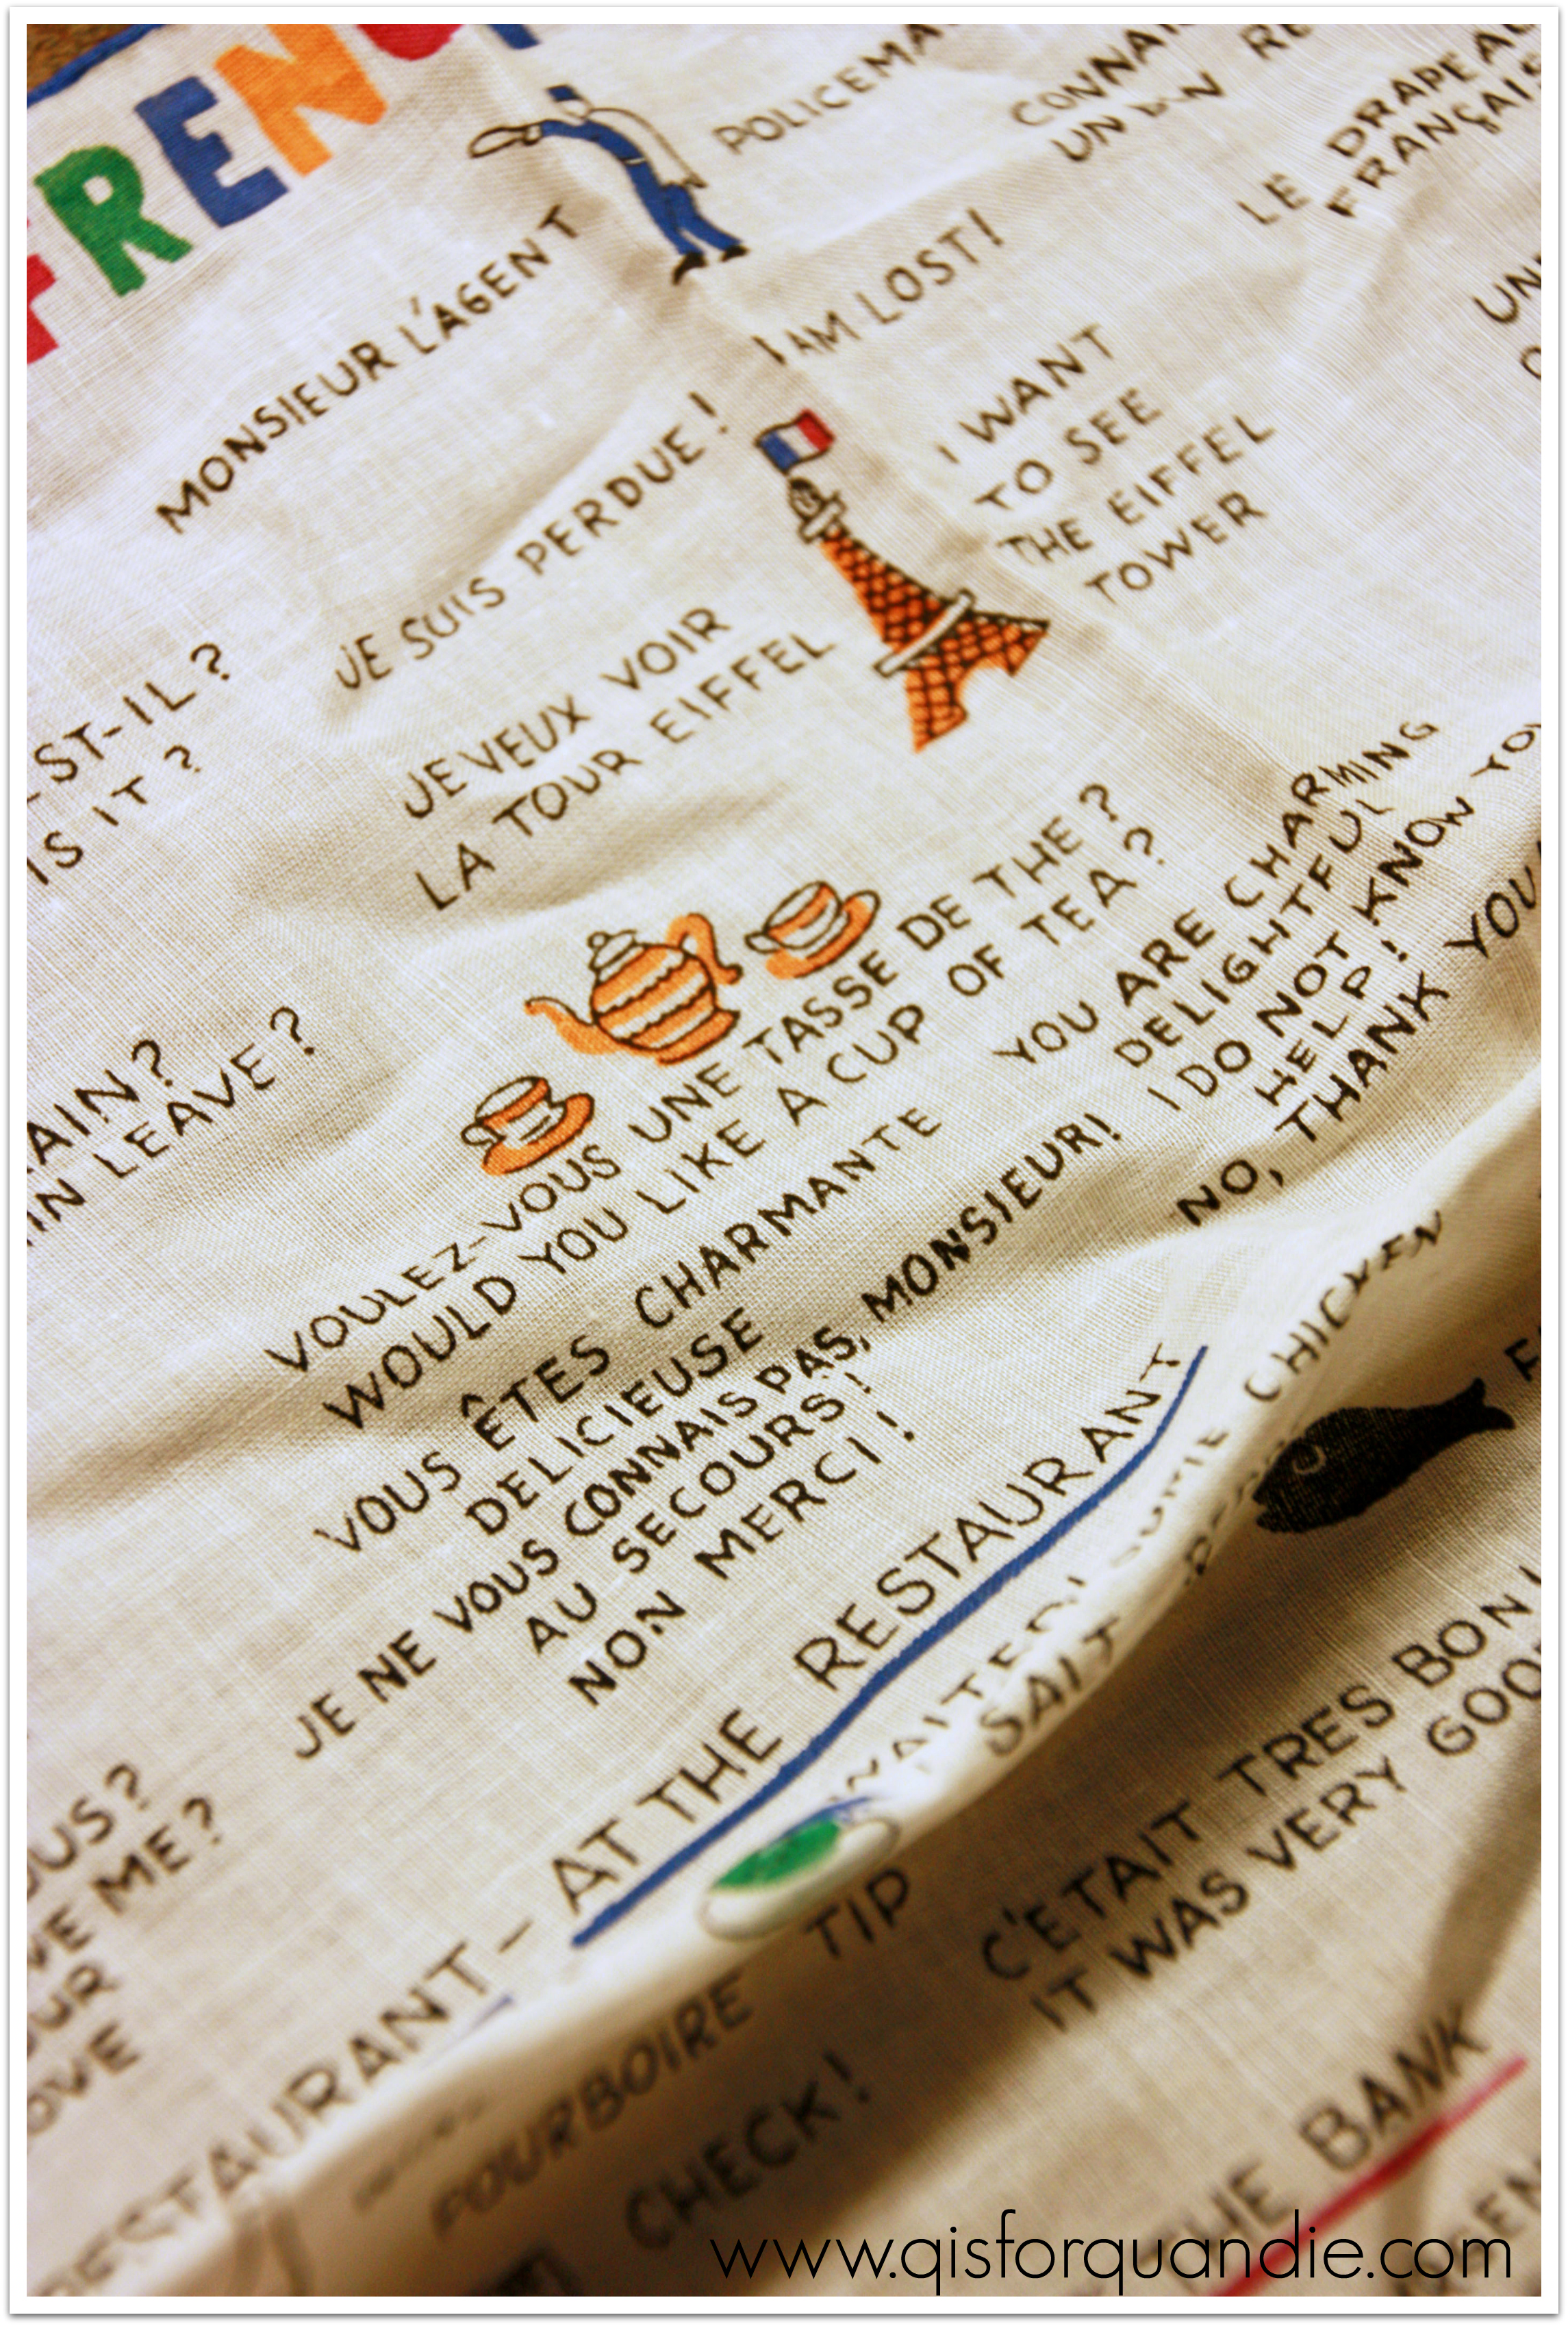 FRENCH
MONSIEUR L'AGENT
POLICEMA
CONNAI
UN
RE
LE DRAPEAU
FRANÇAIS
UN
JE SUIS PERDUE!
I AM LOST!
JE VEUX VOIR
LA TOUR EIFFEL
I WANT
TO SEE
THE EIFFEL
TOWER
EST-IL?
IS IT?
AIN?
IN LEAVE?
VOULEZ-VOUS UNE TASSE DE THE?
WOULD YOU LIKE A CUP OF TEA?
VOUS ÊTES CHARMANTE
DELICIEUSE
JE NE VOUS CONNAIS PAS, MONSIEUR!
AU SECOURS!
NON MERCI!
YOU ARE CHARMING
DELIGHTFUL
I DO NOT KNOW YOU
HELP!
NO, THANK YOU
OUS?
VE ME?
OUR
OVE
RESTAURANT - AT THE RESTAURANT
WAITER!
SALT
CHICKEN
POURBOIRE
TIP
CHECK!
C'ETAIT TRES BON!
IT WAS VERY GOOD
THE BANK
www.qisforquandie.com